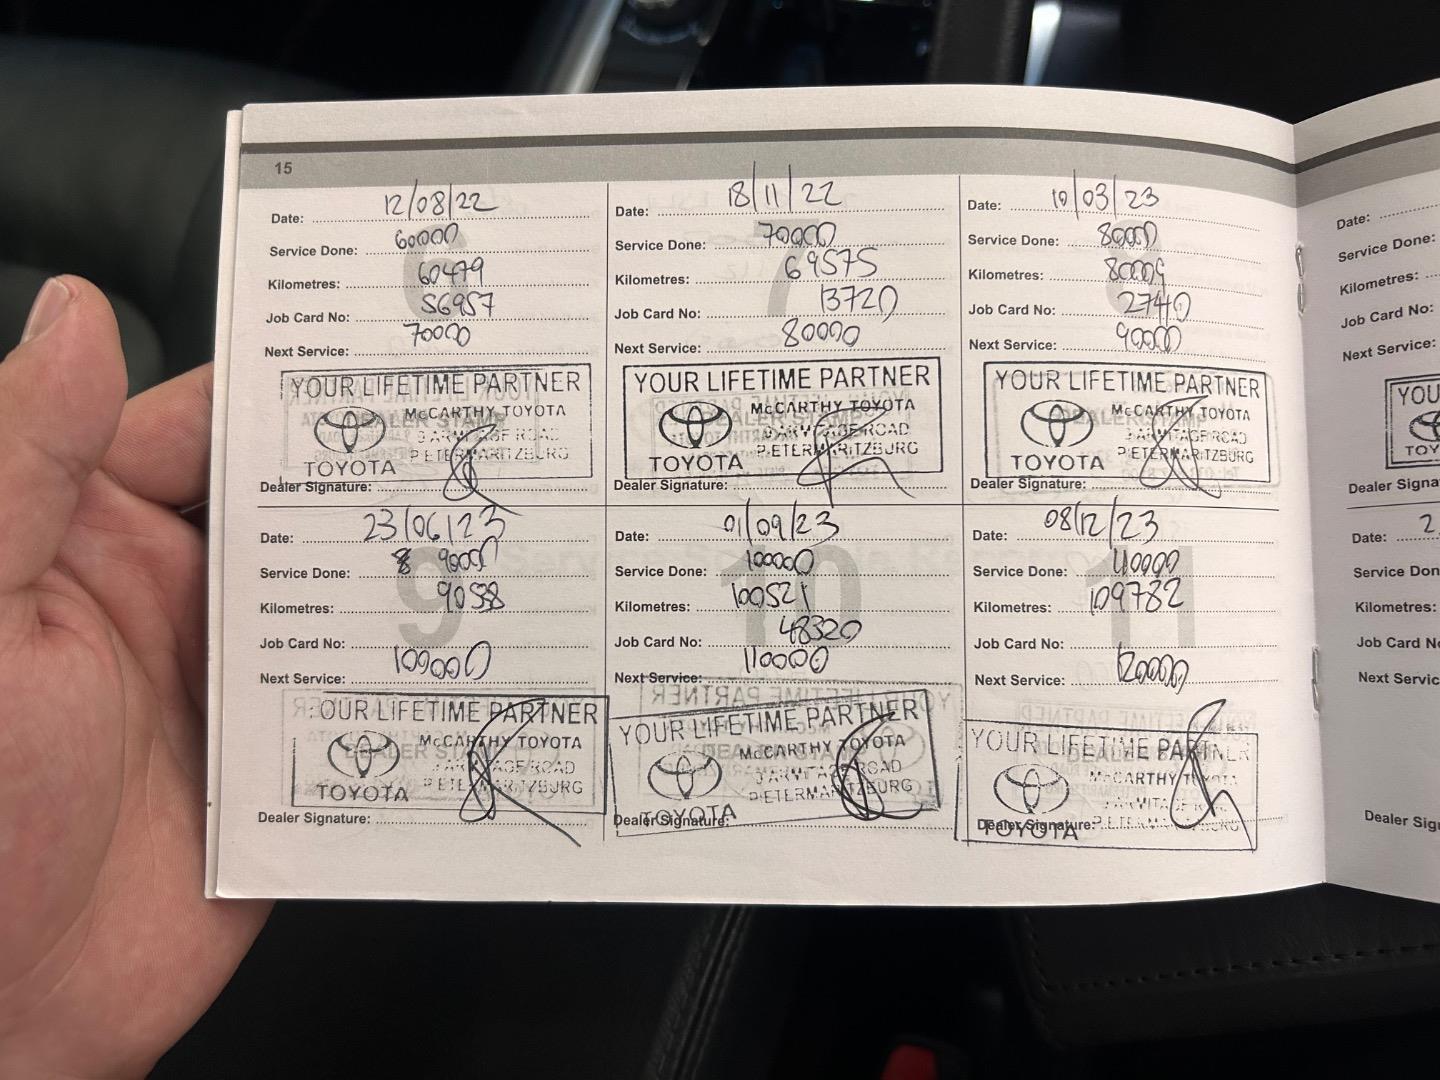 15
Date: 12/08/22
Service Done: 60000
Kilometres: 60479
Job Card No: 56957
Next Service: 70000
YOUR LIFETIME PARTNER
McCARTHY TOYOTA
ARMITAGE ROAD
PIETERMARITZBURG
TOYOTA
Dealer Signature:
Date: 18/11/22
Service Done: 70000
Kilometres: 69575
Job Card No: 13720
Next Service: 80000
7
YOUR LIFETIME PARTNER
McCARTHY TOYOTA
ARMITAGE ROAD
PIETERMARITZBURG
TOYOTA
Dealer Signature:
Date: 10/03/23
Service Done: 80000
Kilometres: 80009
Job Card No: 27410
Next Service: 90000
YOUR LIFETIME PARTNER
McCARTHY TOYOTA
ARMITAGE ROAD
PIETERMARITZBURG
TOYOTA
Dealer Signature:
Date: 23/06/23
Service Done: 90000
Kilometres: 9058
Job Card No:
Next Service: 100000
9
OUR LIFETIME PARTNER
McCARTHY TOYOTA
ARMITAGE ROAD
PIETERMARITZBURG
TOYOTA
Dealer Signature:
Date: 01/09/23
Service Done: 100000
Kilometres: 100521
Job Card No: 48320
Next Service: 110000
10
YOUR LIFETIME PARTNER
McCARTHY TOYOTA
ARMITAGE ROAD
PIETERMARITZBURG
TOYOTA
Dealer Signature:
Date: 08/12/23
Service Done: 110000
Kilometres: 109782
Job Card No:
Next Service: 120000
11
YOUR LIFETIME PARTNER
McCARTHY TOYOTA
ARMITAGE
TOYOTA
Dealer Signature:
Date:
Service Done:
Kilometres:
Job Card No:
Next Service:
YOU
TOY
Dealer Signa
Date: 2
Service Don
Kilometres:
Job Card No
Next Servic
Dealer Sig